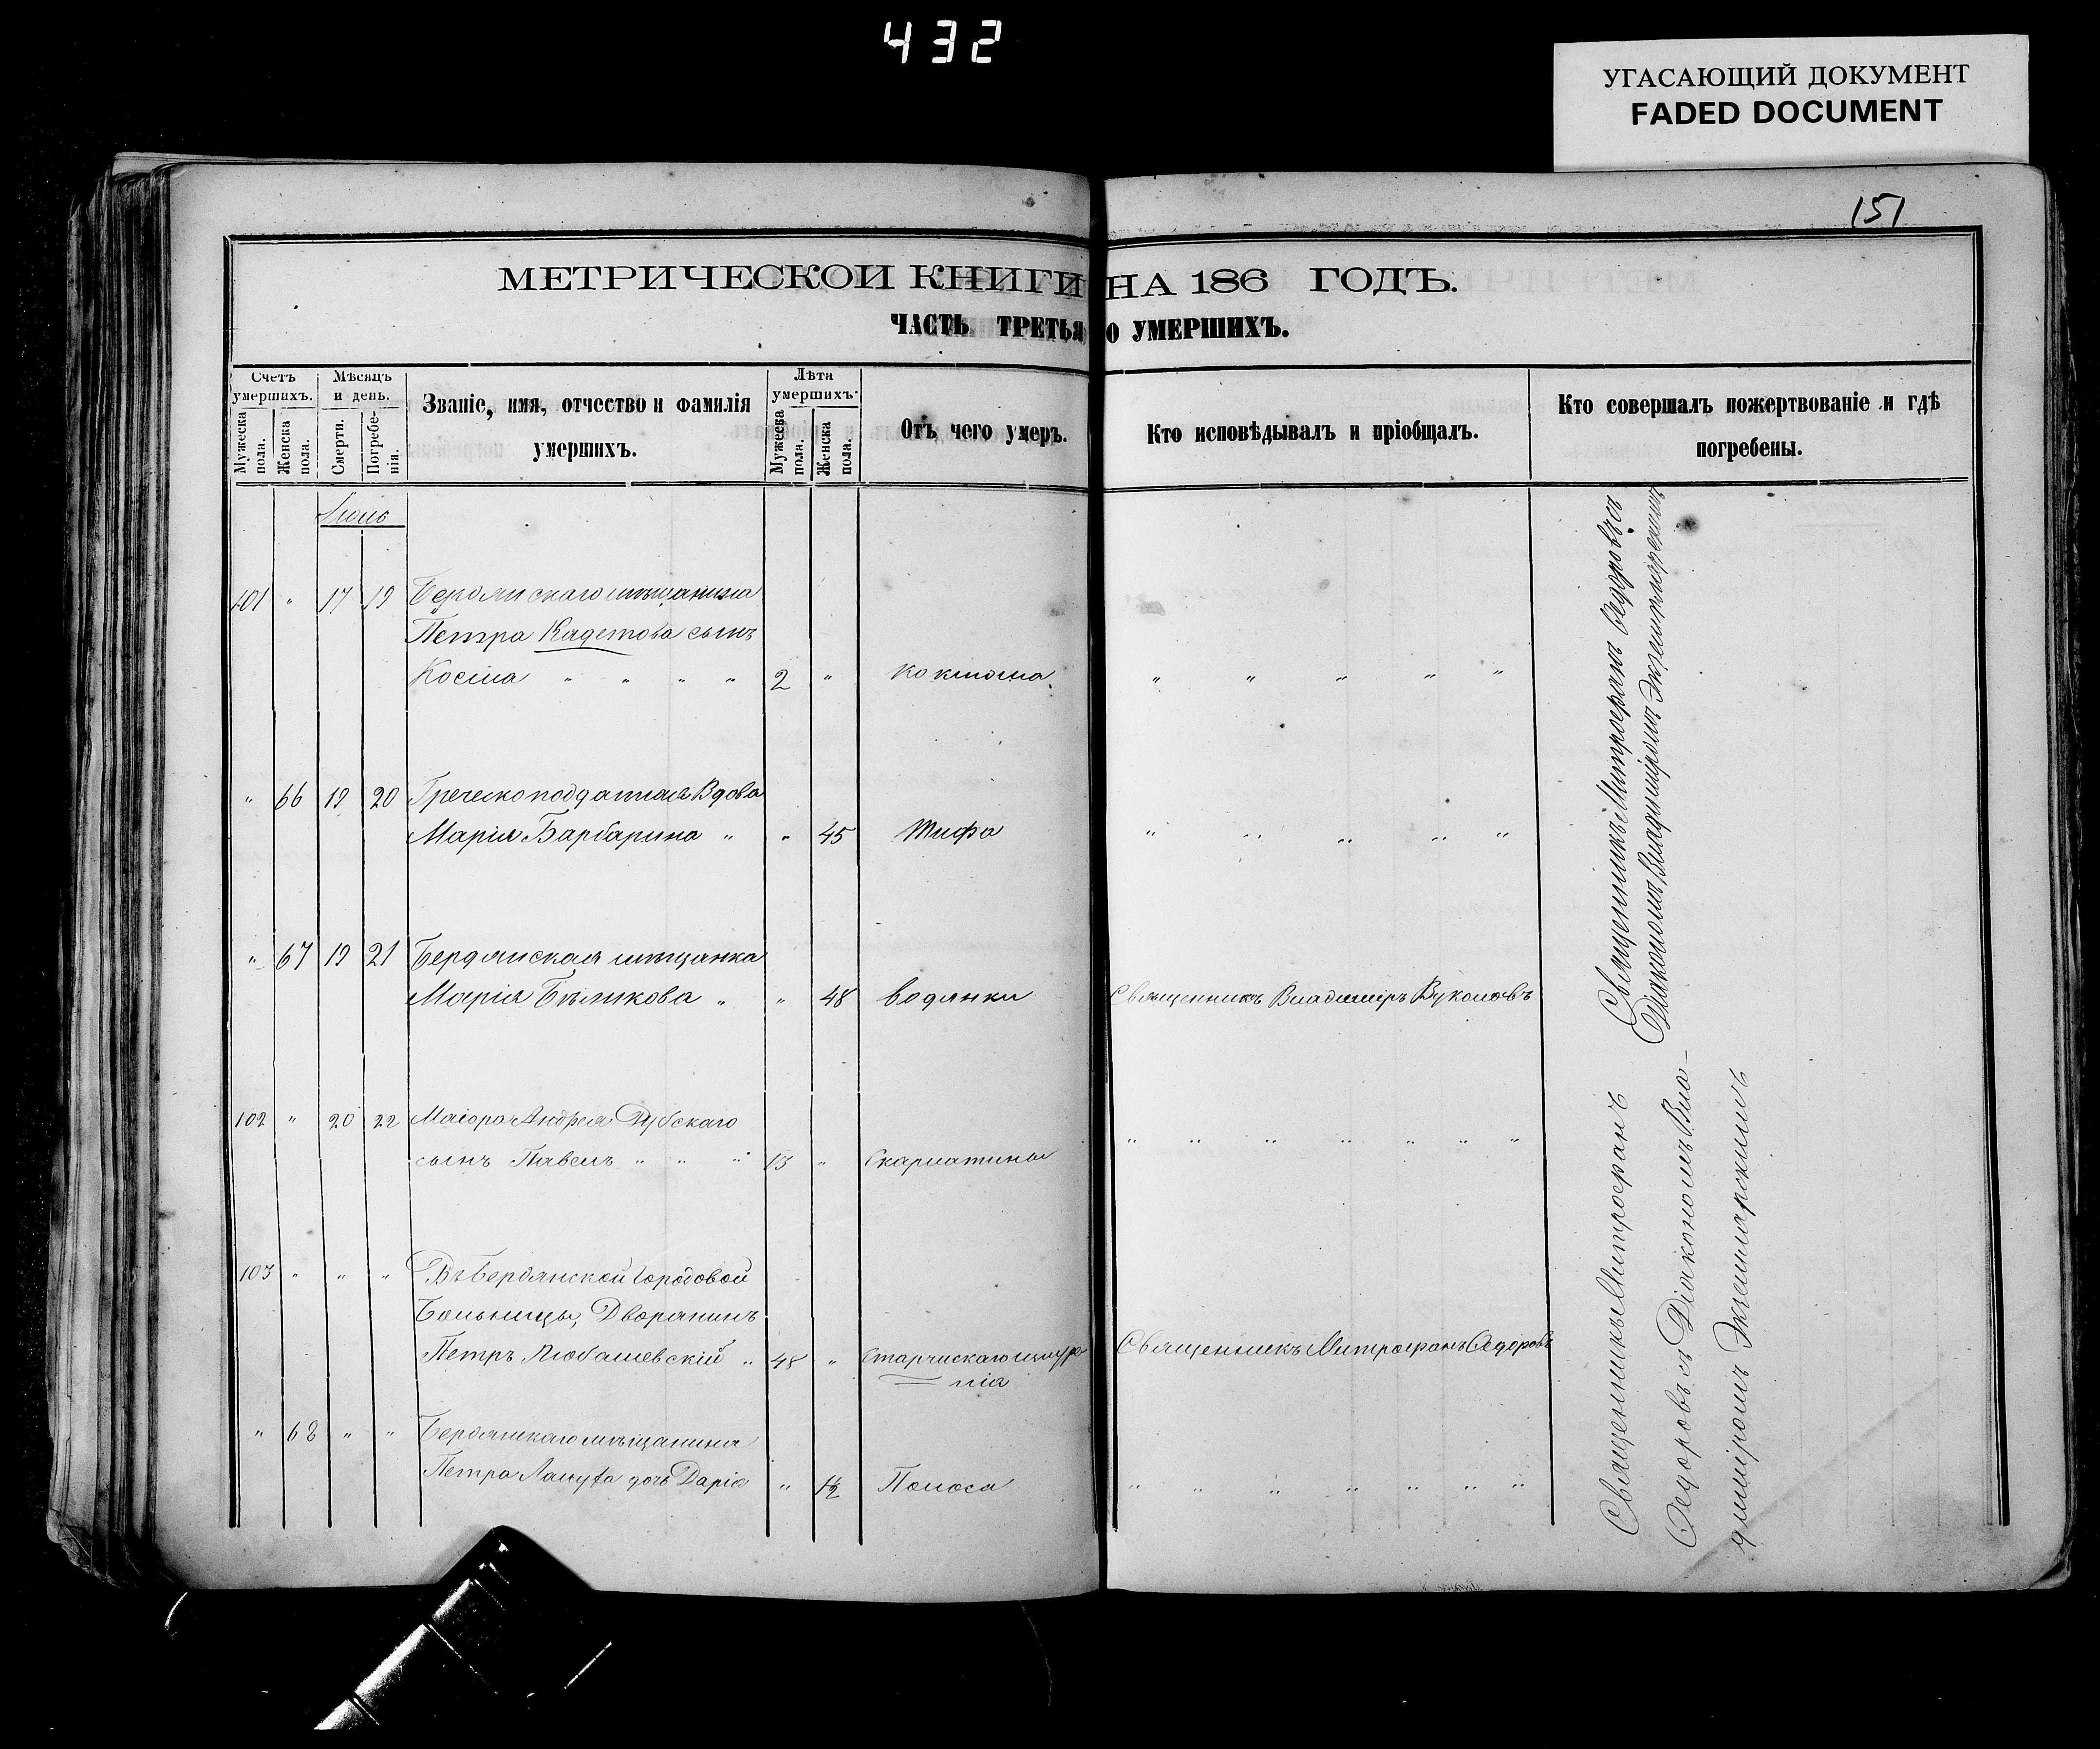 432
УГАСАЮЩИЙ ДОКУМЕНТ
FADED DOCUMENT
151
МЕТРИЧЕСКОИ КНИГИ НА 186 ГОДЪ.
ЧАСТЬ ТРЕТЬЯ О УМЕРШИХЪ.
Счетъ умершихъ.
Мужеска пола.
Женска пола.
Мѣсяцъ и день.
Смерти.
Погребенія.
Званіе, имя, отчество и фамилія умершихъ.
Лѣта умершихъ
Мужеска пола.
Женска пола.
Отъ чего умеръ.
Кто исповѣдывалъ и пріобщалъ.
Кто совершалъ пожертвованіе и гдѣ погребены.
101 " 17 19 Бердянскаго мѣщанина
Петра Кадетова сынъ
Косма " " " " 2 " Коклюша " " " " "
" 66 19 20 Греческоподданная Вдова
Марія Барбарина " " 45 Тифа " " " " "
" 67 19 21 Бердянская мѣщанка
Марія Бѣликова " " 48 водянки Священникъ Владиміръ Вуколовъ
102 " 20 22 Маіора Андрея Дубскаго
сынъ Павелъ " " " 13 " Скарлатины " " " " " " "
103 " " " Въ Бердянской Городовой
Больницы, Дворянинъ
Петръ Любашевскій " 48 " Старческаго Священникъ Митрофанъ Ѳедоровъ
" 68 " " Бердянскаго мѣщанина
Петра дочь Дарія " 1/2 Поноса " " " " " " "
Священникъ Митрофанъ Ѳедоровъ съ
Діакономъ Владиміромъ Экземплярскимъ
Священникъ Митрофанъ
Ѳедоровъ съ Діакономъ Вла-
диміромъ Экземплярскимъ